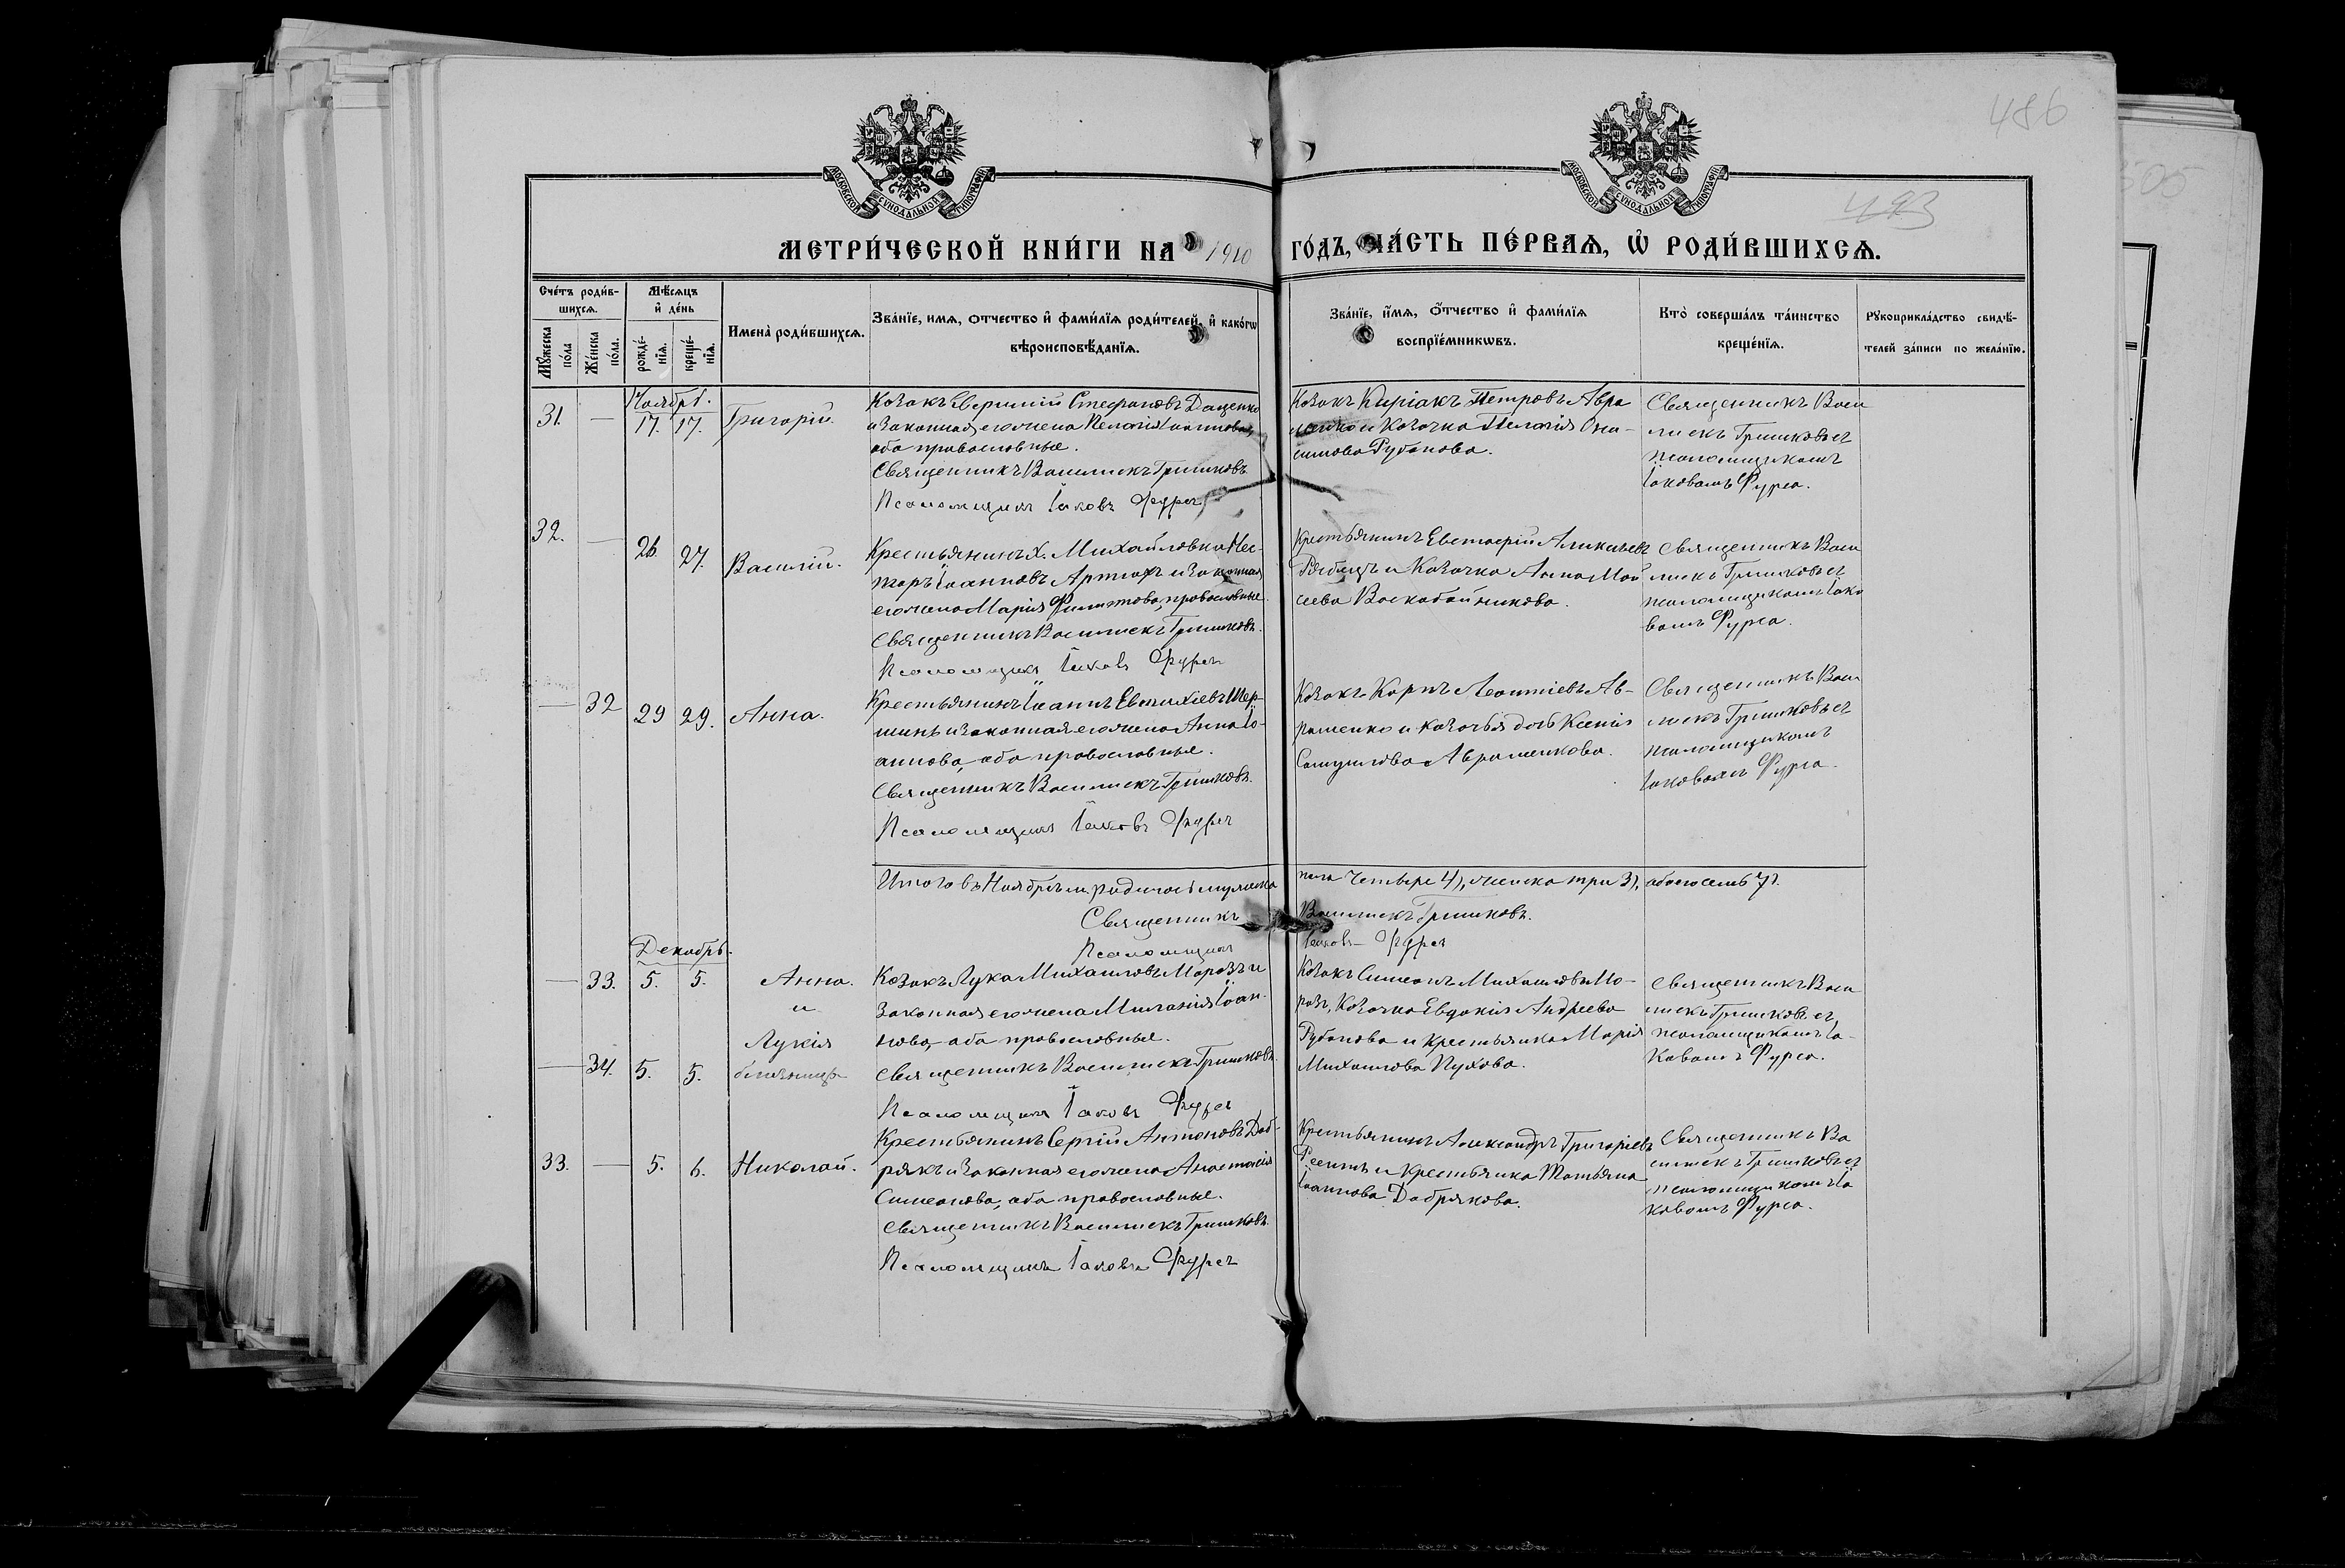 486
493
505
МОСКОВСКОЙ СУНОДАЛЬНОЙ ТИПОГРАФІИ
МОСКОВСКОЙ СУНОДАЛЬНОЙ ТИПОГРАФІИ
МЕТРИ́ЧЕСКОЙ КНИ́ГИ НА 1910 ГО́ДЪ, ЧА́СТЬ ПЕ́РВАѦ, Ѡ҆ РОДИ́ВШИХСѦ.
Счéтъ роди́в-
шихсѧ.
Мꙋ́жеска
по́ла
Же́нска
по́ла.
Мѣ́сѧцъ
и҆ де́нь
рожде́-
нїѧ.
креще́-
нїѧ.
Имена̀ роди́вшихсѧ.
Зва́нїе, имѧ, отчество и҆ фами́лїѧ роди́телей, и҆ како́гѡ
вѣроисповѣ́данїѧ.
Зва́нїе, и҆́мѧ, о҆́тчество и҆ фами́лїѧ
воспрїе́мникѡвъ.
Кто̀ соверша́лъ та́инство
креще́нїѧ.
Рꙋкоприкла́дство свидѣ́-
телей за́писи по жела́нїю.
Ноябрь.
31. — 17. 17. Григорій.
Козакъ Стефановъ Даценко
и законная его жена Пелагія Іоаннова,
оба православные.
Священникъ Василискъ Гришковъ
Псаломщикъ Іаковъ Фурса
Козакъ Киріакъ Петровъ Авра
менко и Козачка Пелагія Они-
симова Рубанова.
Священникъ Васи
лискъ Гришковъ съ
псаломщикомъ
Іаковомъ Фурса.
32. — 26 27. Василій.
Крестьянинъ х. Михайловки Нес-
торъ Іоанновъ Артюхъ и законная
его жена Марія Филиппова, православные.
Священникъ Василискъ Гришковъ.
Псаломщикъ Іаковъ Фурса
Крестьянинъ Евстафій
и Козачка Анна Мои
сеева Воскобойникова.
Священникъ Васи
лискъ Гришковъ съ
псаломщикомъ Іако
вомъ Фурса.
— 32 29 29. Анна.
Крестьянинъ Іоаннъ Евтихіевъ Шер-
шинь и законная его жена Анна Іо-
аннова, оба православные.
Священникъ Василискъ Гришковъ.
Псаломщикъ Іаковъ Фурса
Козакъ Карпъ Леонтіевъ Ав-
раменко и козачья дочь Ксенія
Самуилова Авраменкова.
Священникъ Васи
лискъ Гришковъ съ
псаломщикомъ
Іаковомъ Фурса.
Итого въ Ноябрѣ м. родилось мужеска пола четыре 4), женска три 3), обоего семь 7).
Священникъ Василискъ Гришковъ.
Псаломщикъ Іаковъ Фурса
Декабрь.
— 33. 5. 5. Анна.
и
Лукія
— 34. 5. 5. близнецы
Козакъ Лука Михаиловъ Морозъ и
законная его жена Меланія Іоан-
нова, оба православные.
Священникъ Василискъ Гришковъ.
Псаломщикъ Іаковъ Фурса
Козакъ Симеонъ Михаиловъ Мо-
розъ, Козачка Евдокія Андреева
Рубанова и крестьянка Марія
Михаилова Пухова.
Священникъ Васи
лискъ Гришковъ съ
псаломщикомъ Іа-
ковомъ Фурса.
33. — 5. 6. Николай.
Крестьянинъ Сергій Антоновъ Доб-
рякъ и законная его жена Анастасія
Симеонова, оба православные.
Священникъ Василискъ Гришковъ.
Псаломщикъ Іаковъ Фурса
Крестьянинъ Александръ Григоріевъ
и крестьянка Татьяна
Іоаннова Добрякова.
Священникъ Ва
силискъ Гришковъ съ
псаломщикомъ Іа
ковомъ Фурса.